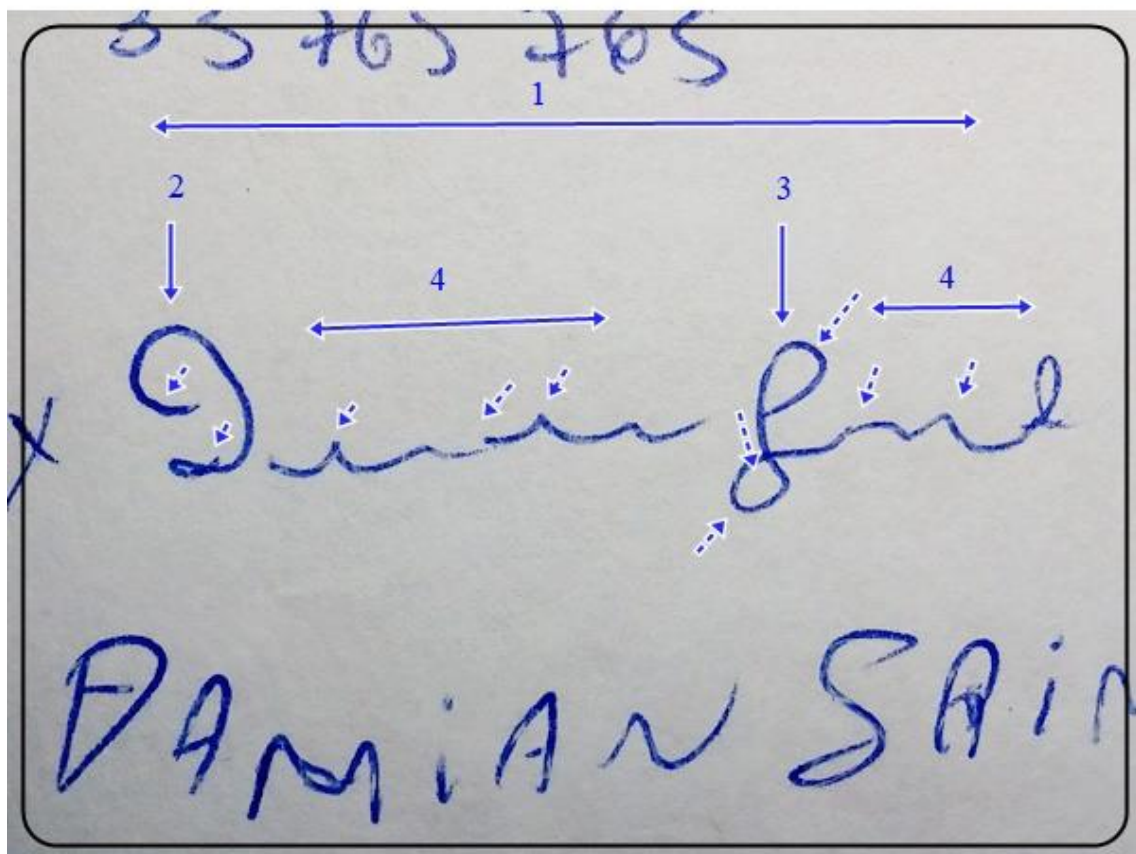 765 765
1
2 3
4 4
x
DAMiAN SAiN